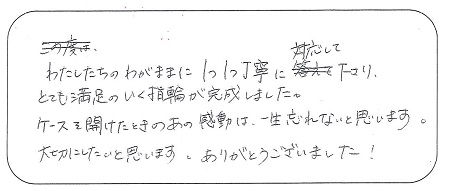 この度は、
わたしたちのわがままに1つ1つ丁寧に対応して下さり、
とても満足のいく指輪が完成しました。
ケースを開けたときのあの感動は、一生忘れないと思います。
大切にしたいと思います。ありがとうございました!